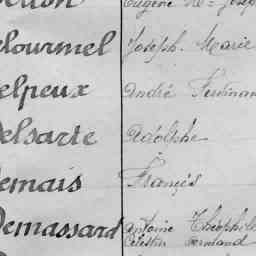 Eugène M
elourmel Joseph Marie
elpeux André Ferdinan
elsarte Adolphe
emais Françis
Demassard Antoine Théophile
Célestin Armand